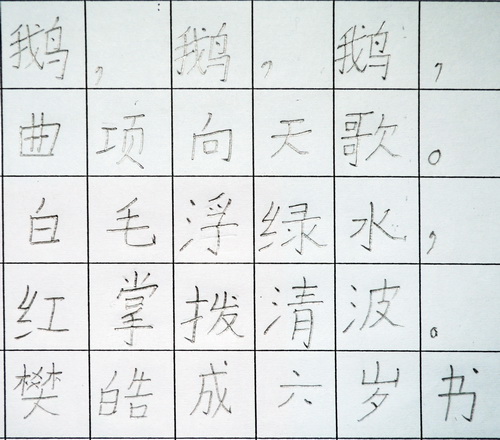 鹅，鹅，鹅，
曲项向天歌。
白毛浮绿水，
红掌拨清波。
樊皓成六岁书